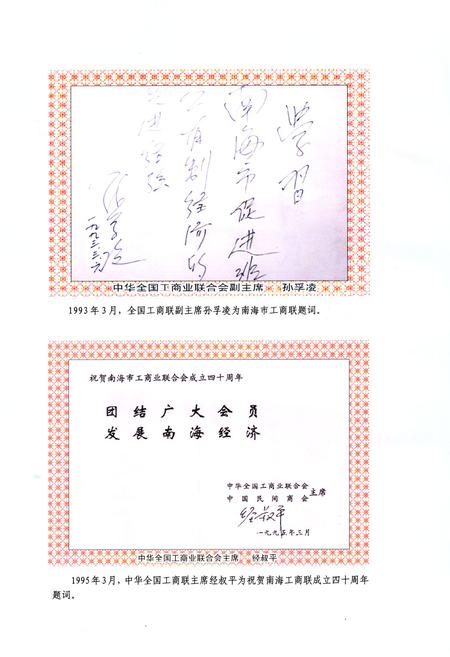 学习
南海市促进非
公有制经济的
先进经验
孙孚凌
一九九三.三.六
中华全国工商业联合会副主席 孙孚凌
1993年3月，全国工商联副主席孙孚凌为南海市工商联题词。
祝贺南海市工商业联合会成立四十周年
团结广大会员
发展南海经济
中华全国工商业联合会
中国民间商会
主席
经叔平
一九九五年三月
中华全国工商业联合会主席 经叔平
1995年3月，中华全国工商联主席经叔平为祝贺南海工商联成立四十周年
题词。